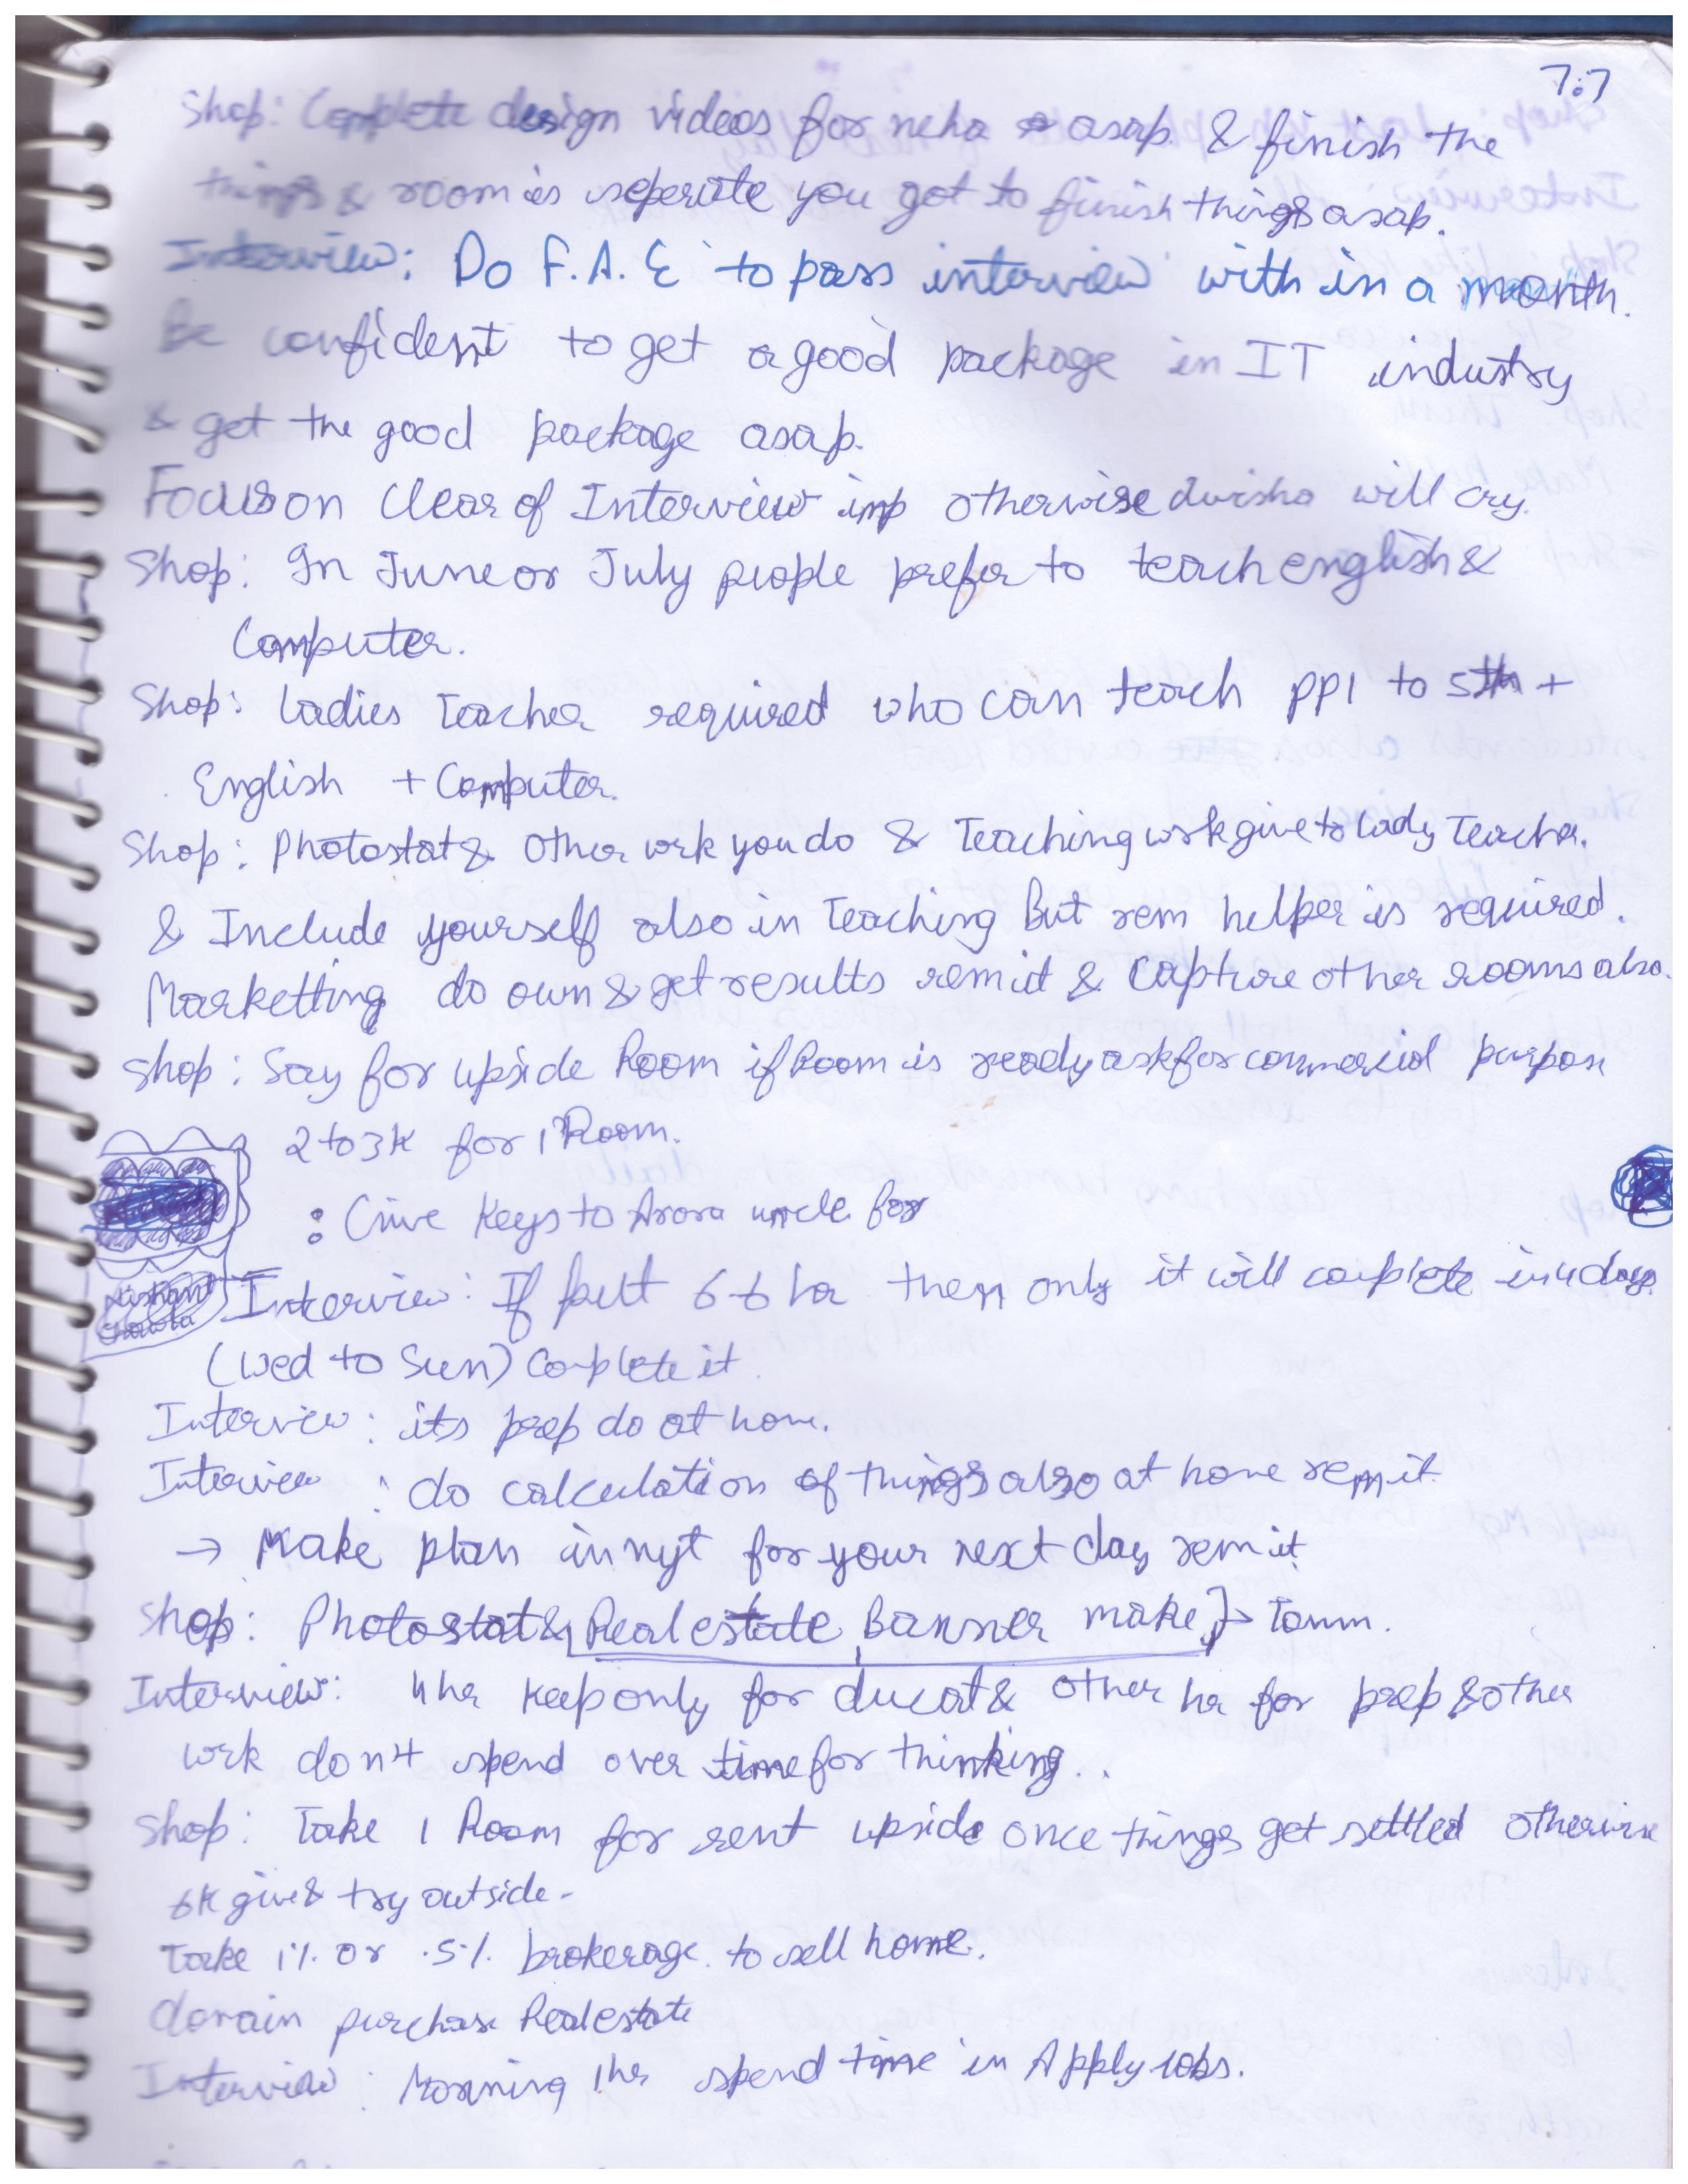 7:7
Shop: Complete design videos for neha asap. & finish the
things & room is seperate you got to finish things asap.
Interview: Do F.A.E to pass interview with in a month.
Be confident to get a good package in IT industry
& get the good package asap.
Focus on Clear of Interview imp otherwise duisha will cry.
Shop: In June or July people prefer to teach english &
Computer.
Shop: Ladies Teacher required who can teach PP1 to 5th +
English + Computer.
Shop: Photostat & Other wrk you do & Teaching wrk give to lady Teacher.
& Include yourself also in Teaching But rem helper is required.
Marketting do own & get results rem it & Capture other rooms also.
Shop: Say for upside Room if Room is ready ask for commercial purpose
2 to 3K for 1 Room.
: Give Keys to Arora uncle for
Interview: If put 6 hr then only it will complete in 4 days
(Wed to Sun) Complete it.
Interview: its prep do at home.
Interview: do calculation of things also at home rem it.
→ Make plan in nyt for your next day rem it
Shop: Photostat & Real estate Banner make → Tomm.
Interview: 4 hr Keep only for ducat & other hr for prep & other
wrk don't spend over time for thinking..
Shop: Take 1 Room for rent upside once things get settled otherwise
6K give & try outside-
Take 1% or .5% brokerage to sell home.
domain purchase Real estate
Interview: Morning 1 hr spend time in Apply Jobs.